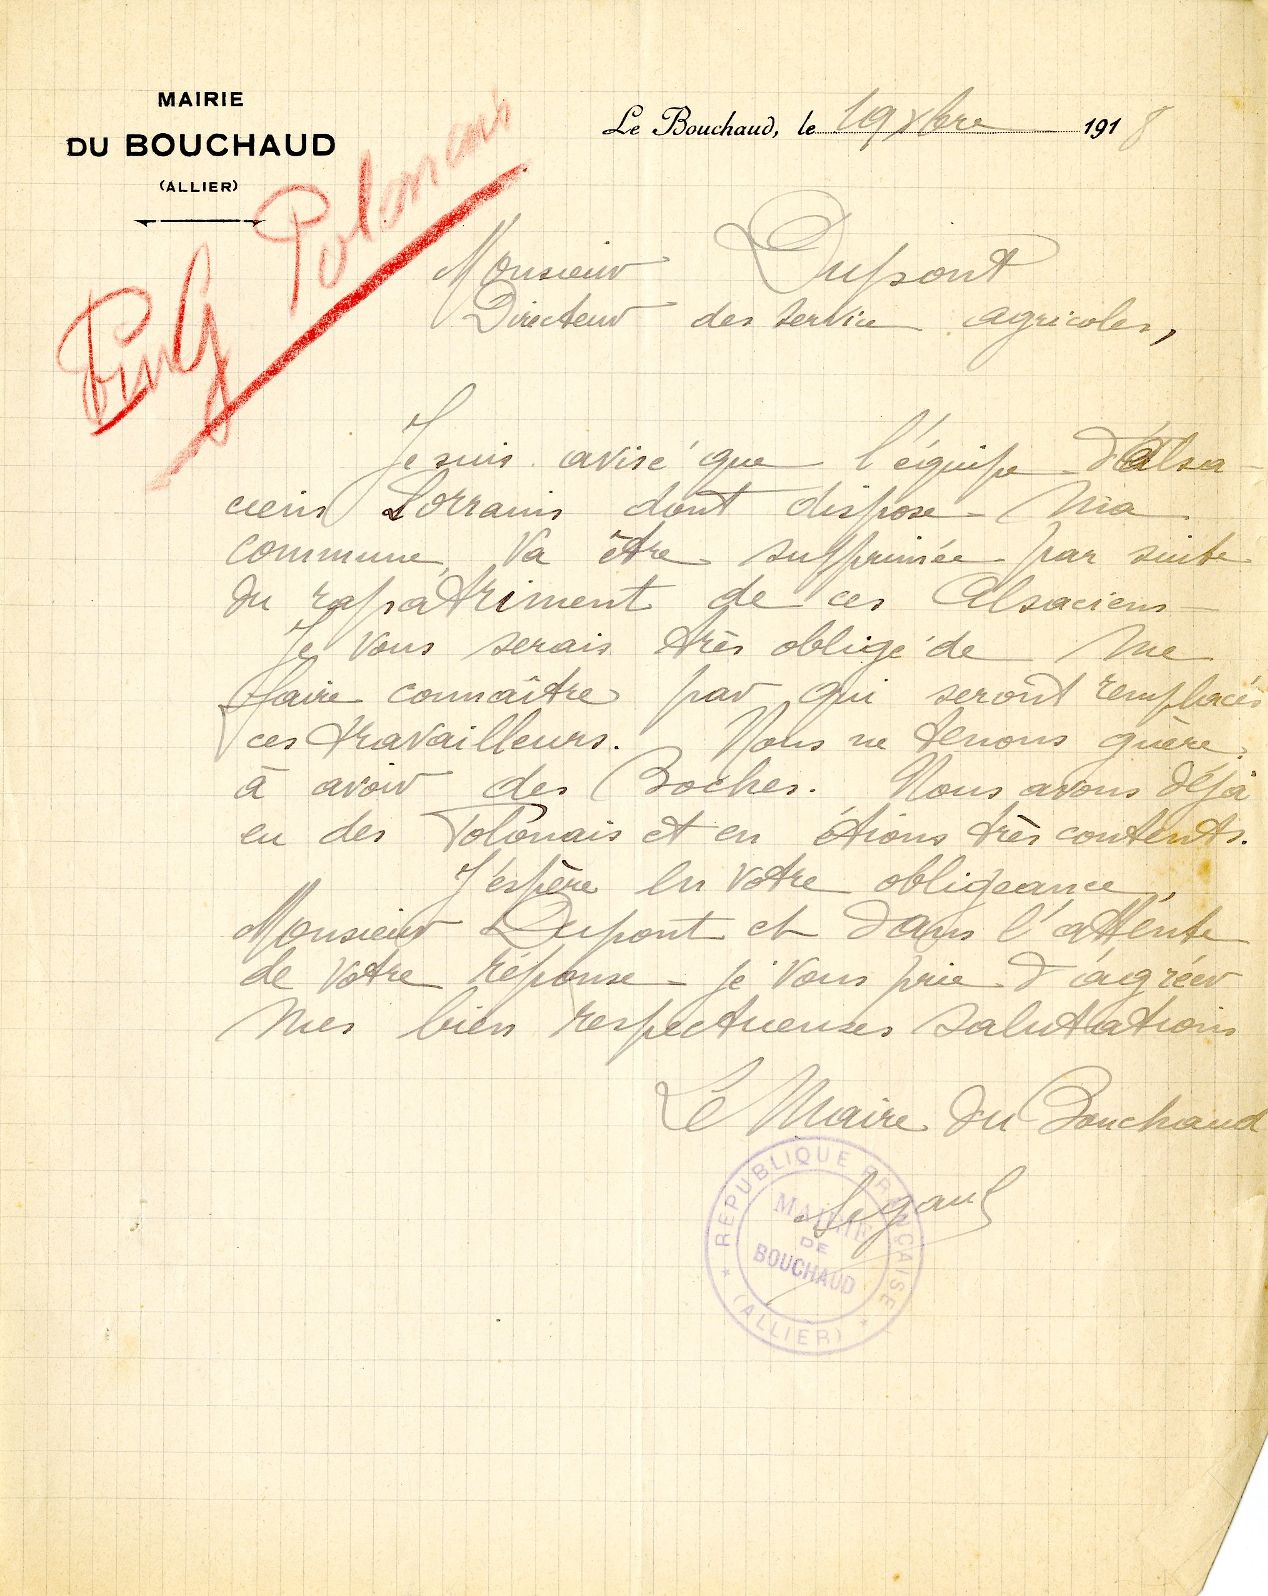 MAIRIE
DU BOUCHAUD
(ALLIER)
Le Bouchaud, le 19 xbre 1918
Polonais
Monsieur Dupont
Directeur des service agricoles,
Je suis avisé que l'équipe d'Alsa-
ciens Lorrains dont dispose ma
commune, va être supprimée par suite
du rapatriment de ces Alsaciens -
Je vous serais très obligé de me
faire connaître par qui seront remplacés
ces travailleurs. Nous ne tenons guère
à avoir des Boches. Nous avons déjà
eu des Polonais et en étions très contents.
J'espère en votre obligeance,
Monsieur Dupont et dans l'attente
de votre réponse - je vous prie d'agréer
mes bien respectueuses salutations
Le Maire du Bouchaud
RÉPUBLIQUE FRANÇAISE
MAIRIE
DE
BOUCHAUD
(ALLIER)